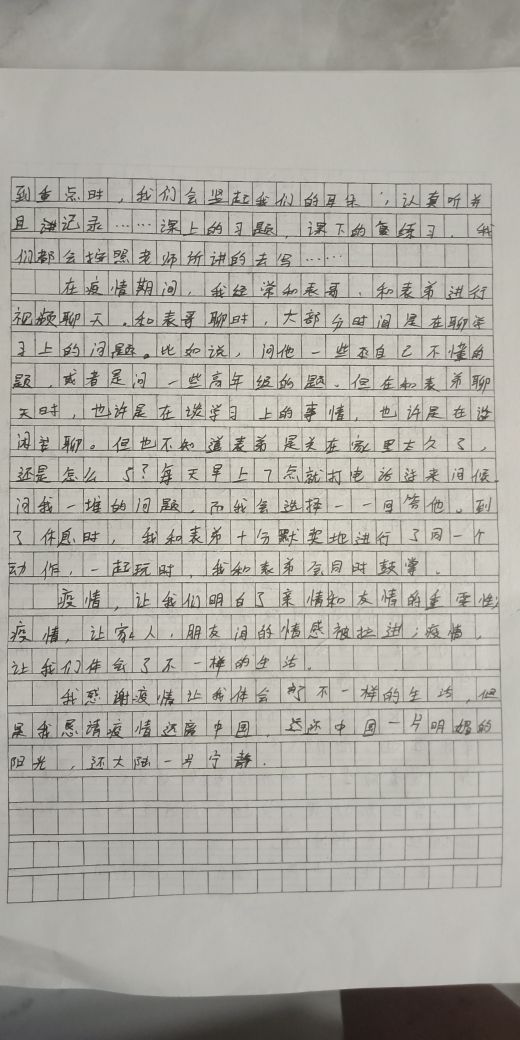 到重点时，我们会竖起我们的耳朵，认真听并
且讲记录……课上的习题，课下的复练习，我
们都会按照老师所讲的去写……
在疫情期间，我经常和表哥、和表弟进行
视频聊天。和表哥聊时，大部分时间是在聊学
习上的问题。比如说，问他一些本自己不懂的
题 或者是问一些高年级的题。但在和表弟聊
天时，也许是在谈学习上的事情，也许是在谈
闲苦聊。但也不知道表弟是关在家里太久了，
还是怎么了？每天早上7点就打电话过来问候，
问我一堆的问题，而我会选择一一回答他。到
了休息时，我和表弟十分默契地进行了同一个
动作，一起玩时，我和表弟会同时鼓掌。
疫情，让我们明白了亲情和友情的重要性；
疫情，让家人，朋友间的情感被拉进；疫情，
让我们体会了不一样的生活。
我感谢疫情让我体会了不一样的生活，但
是我恳请疫情远离中国，还还中国一片明媚的
阳光，还大陆一片宁静。